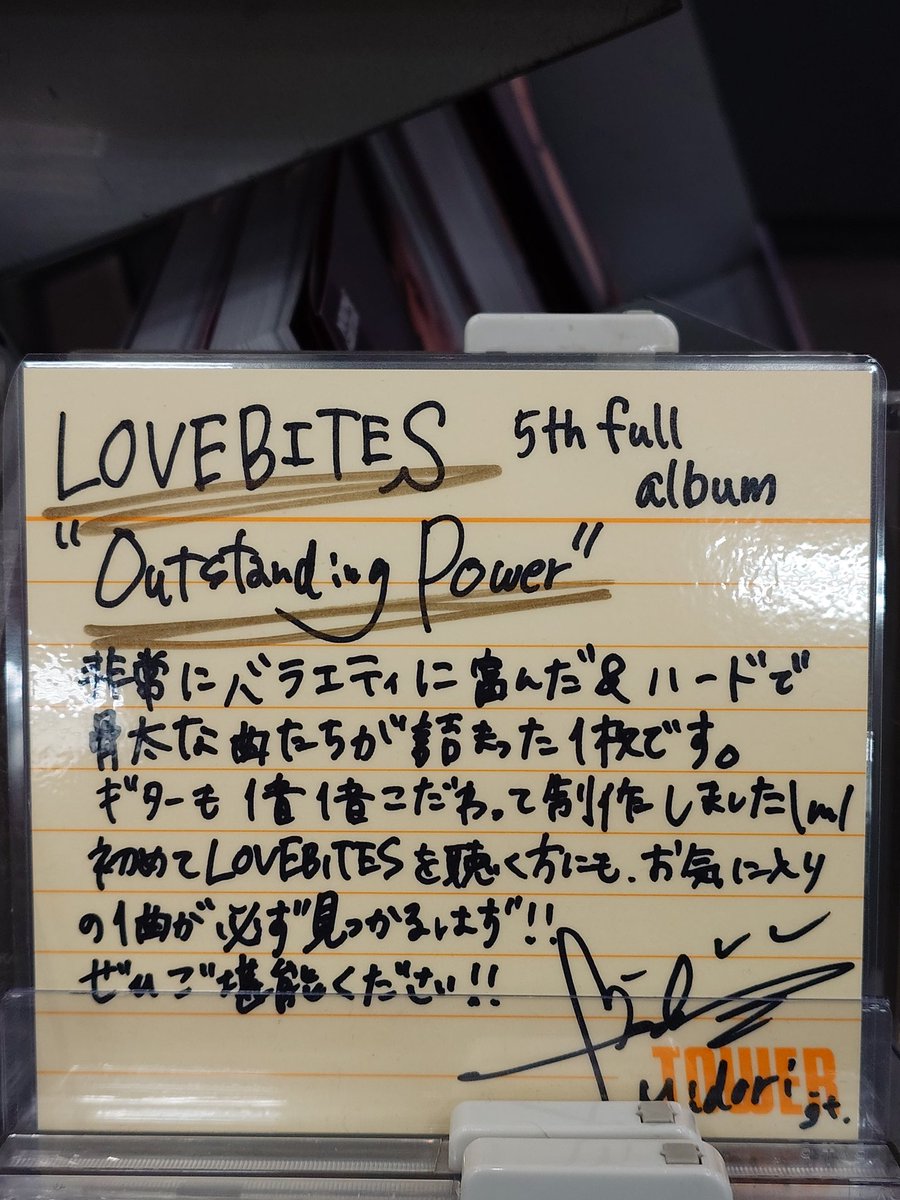 LOVEBITES 5th full
album
"Outstanding Power"
非常にバラエティに富んだ&ハードで
骨太な曲たちが詰まった1枚です。
ギターも1音1音こだわって制作しました\m/
初めてLOVEBITESを聴く方にも、お気に入り
の1曲が必ず見つかるはず!!
ぜひご堪能ください!!
TOWER
Midori gt.